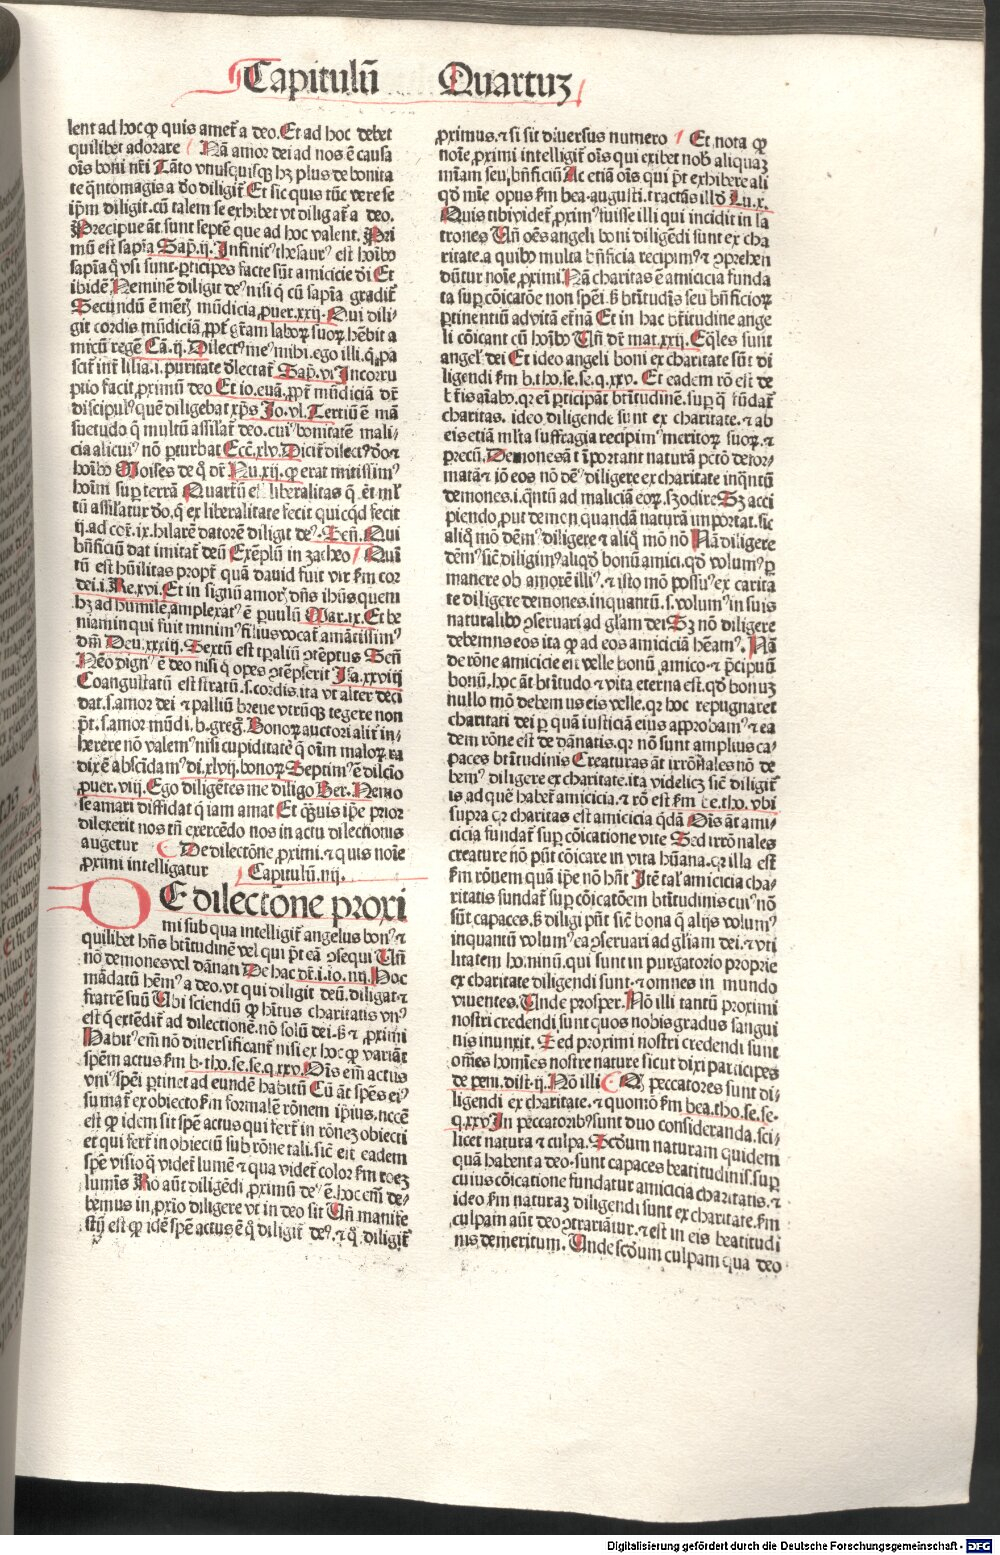 Capitulū Quartuʒ
lent ad hoc ꝙ quis amet᷑ a deo. Et ad hoc debet
quilibet adorare Nā amor dei ad nos ē causa
oīs boni nr̄i Tāto vnusquisqꝫ hꝫ plus de bonita
te q̄ntomagis a dō diligit᷑ Et sic quis tūc vere se
ip̄m diligit. cū talem se exhibet vt diligat᷑ a deo.
Precipue āt sunt septē que ad hoc valent. Pri
mū est sapīa Sap. ij. Infinitꝰ thesaurꝰ est hoībꝰ
sapīa q̄ vsi sunt. ꝑticipes facte sūt amicicie dī Et
ibidē Neminē diligit deꝰ nisi q̄ cū sapīa gradit᷑
Secundū ē mētꝭ mūdicia ꝓuer. xxij. Qui dili-
git cordis mūdiciā, ꝓpt᷑ gr̄am laboꝝ suoꝝ hēbit a
micū regē Cā. ij. Dilectꝰ meꝰ mihi. ego illi. q̄ pa
scit᷑ int᷑ lilia. i. puritate dēlectat᷑ Sap. vi Incorru
ptio facit ꝓximū deo Et io. euā. ꝓpt᷑ mūdiciā dr̄
discipulꝰ quē diligebat xp̄s Jo. vl. Tertiū ē mā
suetudo q̄ multū assilat᷑ deo. cuiꝰ bonitatē mali-
cia alicuiꝰ nō ꝑturbat Eccī. xlv. Dicit᷑ dilectꝰ dō ⁊
hoībꝰ Moises de q̄ dr̄ Nu. xij. ꝙ erat mitissimꝰ
hoīm suꝑ terrā Quartū est liberalitas q̄ ēt ml̄
tū assilatur dō. q̄ ex liberalitate fecit quicqd fecit
ij. ad cor. ix. hilarē datorē diligit deꝰ. Sen̄. Qui
bn̄ficiū dat imitat᷑ deū Exēplū in zacheo Quī
tū est hūilitas propt᷑ quā dauid fuit vir ẜm cor
dei. i. Re. xvi. Et in signū amorꝭ dn̄s ihūs quem
hꝫ ad humilē, amplexatꝰ ē ꝑuulū Mar. ix. Et be
niamin qui fuit minimꝰ filius vocat᷑ amātissimꝰ
dn̄i Deu. xxxiij. Sextū est tp̄aliū ꝯtēptus Sen̄
Nēo dignꝰ ē deo nisi q̄ opes ꝯtēpserit Isa. xxviij
Coangustatū est stratū. s. cordis. ita vt alter deci
dat. s. amor dei ⁊ palliū breue vtrūqꝫ tegere non
pt̄. s. amor mūdi. b. greg. Bonoꝝ auctori alit᷑ in-
herere nō valemꝰ nisi cupiditatē q̄ oīm maloꝝ ra
dix ē abscidamꝰ dī. xlvij. bonoꝝ Septimꝰ ē dilcīo
ꝓuer. viij. Ego diligētes me diligo Ber. Nemo
se amari diffidat q̄ iam amat Et q̄uis ip̄e prior
dilexerit nos tn̄ exercēdo nos in actu dilectionis
augetur De dilectōne ꝓximi. ⁊ quis noīe
ꝓximi intelligatur Capitulū. iiij.
DE dilectōne proxi
mi sub qua intelligit᷑ angelus bonꝰ ⁊
quilibet hn̄s btītudinē vel qui pt̄ eā ꝯsequi Un̄
nō demones vel dānati De hac dr̄. i. io. iiij. Hoc
mādatū hēmꝰ a deo. vt qui diligit deū. diligat ⁊
fratrē suū Ubi sciendū ꝙ hītus charitatis vnꝰ
est q̄ extēdit᷑ ad dilectionē. nō solū dei. ẜ ⁊ ꝓximi
Habitꝰ em̄ nō diuersificant᷑ nisi ex hoc ꝙ variāt
spēm actus ẜm b. tho. se. se. q. xxv. Oīs em̄ actus
vniꝰ spēi ꝑtinet ad eundē habitū Cū āt spēs eiꝰ
sumat᷑ ex obiecto ẜm formalē rōnem ip̄ius. necē
est ꝙ idem sit spē actus qui fert᷑ in rōneʒ obiecti
et qui fert᷑ in obiectū sub rōne tali. sic̄ est eadem
spē visio q̄ videt᷑ lumē ⁊ qua videt᷑ color ẜm roeʒ
lumīs Rō aūt diligēdi ꝓximū deꝰ ē. hoc em̄ de-
bemus in ꝓxīo diligere vt in deo sit Un̄ manife
stū est ꝙ idē spē actus ē q̄ diligit᷑ deꝰ. ⁊ q̄ diligit᷑
ꝓximus. ⁊ si sit diuersus numero Et nota ꝙ
noīe ꝓximi intelligit᷑ oīs qui exibet nob̄ aliquaʒ
mīam seu bn̄ficiū Ac etiā oīs qui pt̄ exhibere ali
qd̄ mīe opus ẜm bea. augusti. tractās illd̄ Lu. x.
Quis tibi videt᷑ ꝓximꝰ fuisse illi qui incidit in la
trones Un̄ oēs angeli boni diligēdi sunt ex cha
ritate. a quibꝰ multa bn̄ficia recipimꝰ ⁊ ꝯprehen
dūtur noīe ꝓximi Nā charitas ē amicicia funda
ta suꝑ cōicatōe non spēi. ẜ btītudīs seu bn̄ficioꝝ
ꝑtinentiū ad vitā et᷑nā Et in hac btītudine ange
li cōicant cū hoībꝰ Un̄ dr̄ mat. xxij. Eq̄les sunt
angelꝭ dei Et ideo angeli boni ex charitate sūt di
ligendi ẜm b. tho. se. se. q. xxv. Et eadem rō est de
btīs aīabꝰ. qꝛ eī ꝑticipāt btītudinē. suꝑ q̄ fūdat᷑
charitas. ideo diligende sunt ex charitate. ⁊ ab
eis etiā ml̄ta suffragia recipimꝰ meritoꝝ suoꝝ. ⁊
precū. Demones āt īportant naturā pctō defor-
matā ⁊ iō eos nō dēꝰ diligere ex charitate inq̄ntū
demones. i. q̄ntū ad maliciā eoꝝ. sꝫ odire Sꝫ acci
piendo. put demon quandā naturā importat. sic
aliq̄ mō dēmꝰ diligere ⁊ aliq̄ mō nō Nā diligere
dēmꝰ sic̄ diligimꝰ aliqd̄ bonū amici. qd̄ volumꝰ ꝑ
manere ob amorē illiꝰ. ⁊ isto mō possuꝰ ex carita
te diligere demones. inquantū. s. volumꝰ in suis
naturalibꝰ ꝯseruari ad gl̄am dei Sꝫ nō diligere
debemus eos ita ꝙ ad eos amiciciā hēamꝰ. Nā
de rōne amicicie est velle bonū amico. ⁊ p̄cipuū
bonū. hoc āt btītudo ⁊ vita eterna est. qd̄ bonuʒ
nullo mō debemus eis velle. qꝛ hoc repugnaret
charitati dei ꝑ quā iusticiā eius approbamꝰ ⁊ ea
dem rōne est de dānatis. qꝛ nō sunt amplius ca-
paces btītudinis Creaturas āt irrōnales nō de
bemꝰ diligere ex charitate. ita videlicꝫ sic̄ diligit᷑
is ad quē habet᷑ amicicia. ⁊ rō est ẜm be. tho. vbi
supra qꝛ charitas est amicicia q̄dā Oīs āt ami-
cicia fundat᷑ suꝑ cōicatione vite Sed irrōnales
creature nō pn̄t cōicare in vita hūana. qꝛ illa est
ẜm rōnem quā ip̄e nō hn̄t Itē tal̄ amicicia cha-
ritatis fundat᷑ suꝑ cōicatōem btītudinis cuiꝰ nō
sūt capaces. ẜ diligi pn̄t sic̄ bona q̄ alijs volumꝰ
inquantū volumꝰ ea ꝯseruari ad gl̄iam dei. ⁊ vti
litatem hominū. qui sunt in purgatorio proprie
ex charitate diligendi sunt. ⁊ omnes in mundo
viuentes. Unde prosper. Nō illi tantū proximi
nostri credendi sunt quos nobis gradus sangui
nis iunxit. Sed proximi nostri credendi sunt
om̄es homīes nostre nature sicut dixi participes
de peni. dist. ij. Nō illi Q, peccatores sunt di-
ligendi ex charitate. ⁊ quomō ẜm bea. tho. se. se.
q. xxv In peccatoribꝰ sunt duo consideranda. sci-
licet natura ⁊ culpa. Scd̄um naturam quidem
quā habent a deo. sunt capaces beatitudinis. suꝑ
cuius cōicatione fundatur amicicia charitatis. ⁊
ideo ẜm naturaʒ diligendi sunt ex charitate. ẜm
culpam aūt deo ꝯtrariātur. ⁊ est in eis beatitudi
nis demeritum. Unde scd̄um culpam qua deo
Digitalisierung gefördert durch die Deutsche Forschungsgemeinschaft - DFG